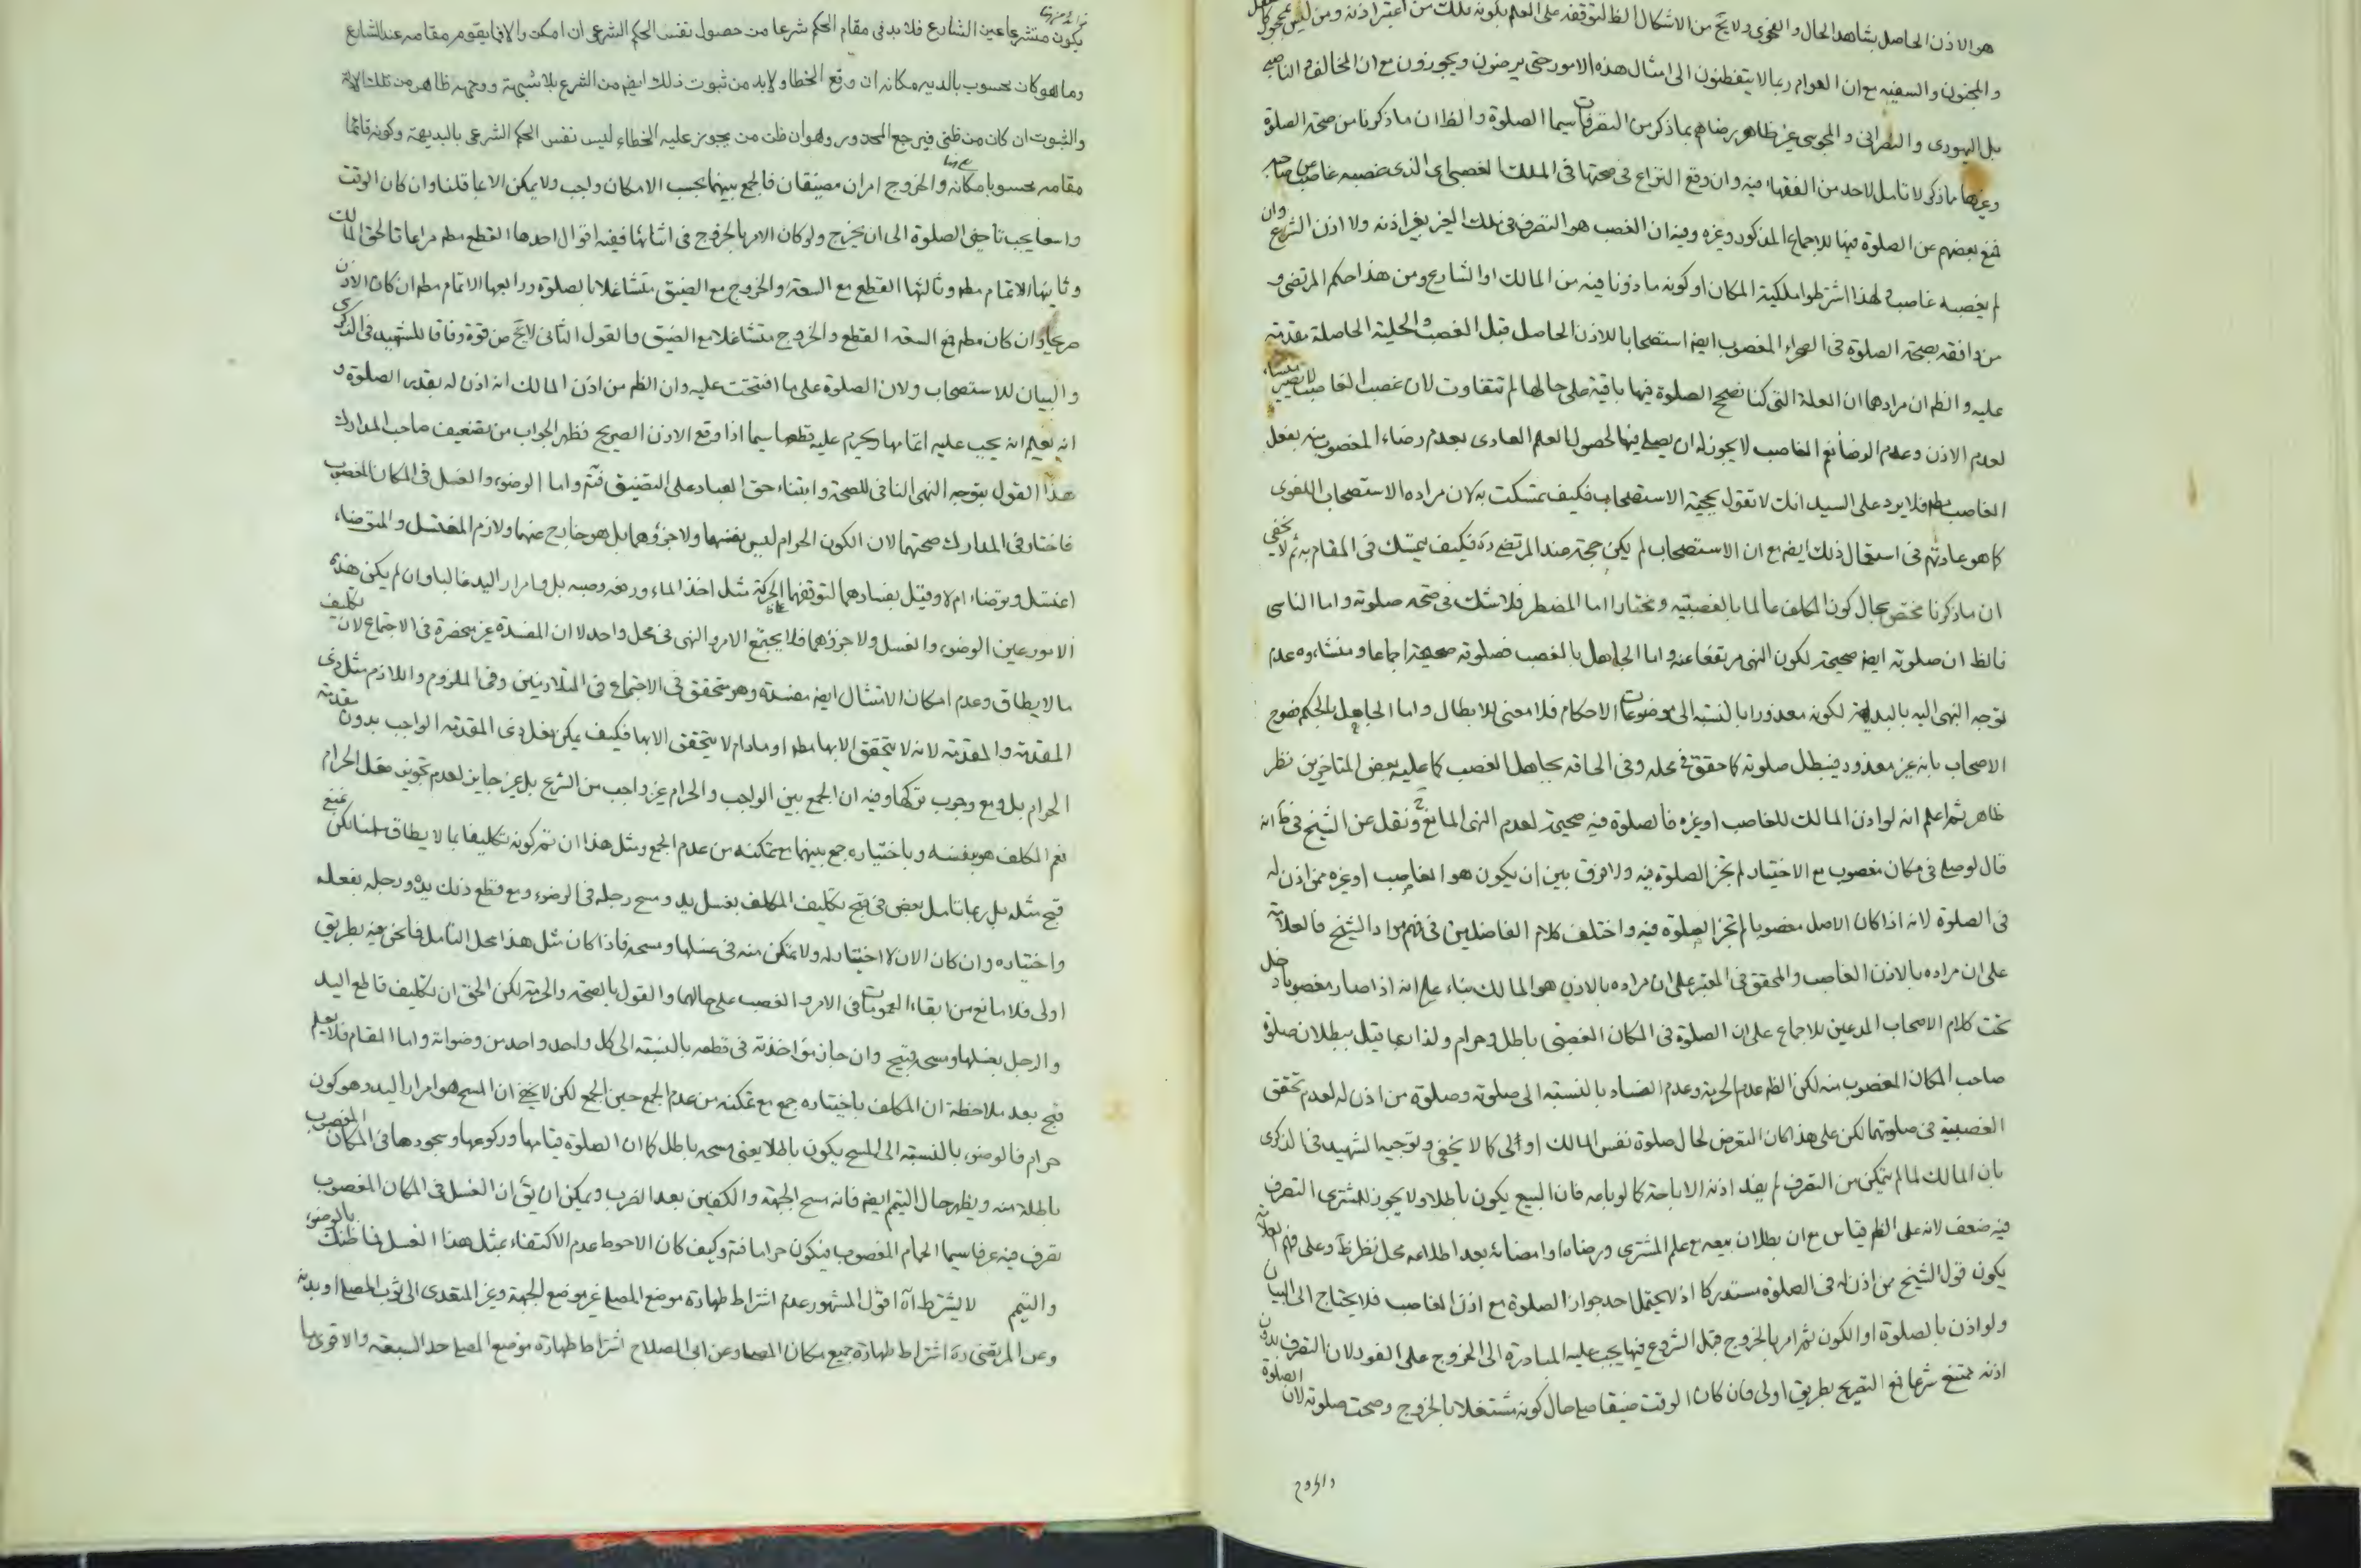 هو الاذن الحاصل بشاهد الحال والفحوى ولا يخ من الاشكال الظ لتوقفه على العلم بكونه ملك من اعتبر اذنه ومن ليس بمجهول
والمجنون والسفيه مع ان العوام ربما لا يتفطنون الى امثال هذه الامور حتى يرضون ويجوزون مع ان المخالف الناصب
بل اليهودى والنصرانى والمجوسى غير ظاهر رضاهم بما ذكر من التصرفات سيما الصلوة والظ ان ما ذكرنا من صحة الصلوة
وغيرها ما ذكر لا تامل لاحد من الفقهاء فيه وان وقع النزاع فى صحتها فى الملك الغصبى اى الذى غصبه غاصب من صاحبه
فمنع بعضهم عن الصلوة فيها للاجماع المذكور وغيره وفيه ان الغصب هو التصرف فى ملك الغير بغير اذنه ولا اذن الشرع وان
لم يغصبه غاصب ولهذا اشترطوا ملكية المكان او كونه ماذونا فيه من المالك او الشارع ومن هذا حكم المرتضى و
من وافقه بصحة الصلوة فى الصحراء المغصوب ايض استصحابا للاذن الحاصل قبل الغصب والحلية الحاصلة مقدمة
عليه والظ ان مرادهما ان العلة التى كنا نصحح الصلوة فيها باقية على حالها لم تتفاوت لان غصب الغاصب لا يصير منشاء
لعدم الاذن وعدم الرضا نعم الغاصب لا يجوز له ان يصلى فيها لحصول العلم العادى بعدم رضاء المغصوب منه بفعل
الغاصب مطم فلا يرد على السيد انك لا تقول بحجية الاستصحاب فكيف تمسكت به لان مراده الاستصحاب اللغوى
كما هو عادتهم فى استعمال ذلك ايض مع ان الاستصحاب لم يكن حجة عند المرتضى ره فكيف يتمسك فى المقام به ثم لا يخفى
ان ما ذكرنا مختص بحال كون المكلف عالما بالغصبية ومختارا اما المضطر فلا شك فى صحة صلوته واما الناسى
فالظ ان صلوته ايض صحيحة لكون النهى مرتفعا عنه واما الجاهل بالغصب فصلوته صحيحة اجماعا ومنشاؤه عدم
توجه النهى اليه بالبديهة لكونه معذورا بالنسبة الى موضوعات الاحكام فلا معنى للابطال واما الجاهل بالحكم فصرح
الاصحاب بانه غير معذور فيبطل صلوته كما حقق فى محله وفى الحاقه بجاهل الغصب كما عليه بعض المتاخرين نظر
ظاهر ثم اعلم انه لو اذن المالك للغاصب او غيره فالصلوة فيه صحيحة لعدم النهى المانع ح ونقل عن الشيخ فى ط انه
قال لو صلى فى مكان مغصوب مع الاختيار لم تجز الصلوة فيه ولا فرق بين ان يكون هو الغاصب او غيره ممن اذن له
فى الصلوة لانه اذا كان الاصل مغصوبا لم تجز الصلوة فيه واختلف كلام الفاضلين فى فهم مراد الشيخ فالعلامة
على ان مراده بالاذن الغاصب والمحقق فى المعتبر على ان مراده بالاذن هو المالك بناء على انه اذا صار مغصوبا دخل
تحت كلام الاصحاب المدعين للاجماع على ان الصلوة فى المكان الغصبى باطل وحرام ولذا ربما قيل ببطلان صلوة
صاحب المكان المغصوب منه لكن الظ عدم الحرمة وعدم الفساد بالنسبة الى صلوته وصلوة من اذن له لعدم تحقق
الغصبية فى صلوتهما لكن على هذا كان التعرض لحال صلوة نفس المالك اولى كما لا يخفى وتوجيه الشهيد فى الذكرى
بان المالك لما لم يتمكن من التصرف لم يفد اذنه الاباحة كما لو باعه فان البيع يكون باطلا ولا يجوز للمشترى التصرف
فيه ضعف لانه على الظ قياس مع ان بطلان بيعه مع علم المشترى ورضاه او امضائه بعد اطلاعه محل نظر ظ وعلى فهم العلامة
يكون قول الشيخ من اذن له فى الصلوة مستدركا اذ لا يحتمل احد جواز الصلوة مع اذن الغاصب فلا يحتاج الى البيان
ولو اذن بالصلوة او الكون ثم امر بالخروج قبل الشروع فيها يجب عليه المبادرة الى الخروج على الفور لان التصرف بدون
اذنه ممتنع شرعا فمع التصريح بطريق اولى فان كان الوقت ضيقا صلى حال كونه مشتغلا بالخروج وصحت صلوته لان الصلوة
والخروج
يكون منشرعا عين الشارع فلا بد فى مقام الحكم شرعا من حصول نفس الحكم الشرعى ان امكن والا فما يقوم مقامه عند الشارع
وما هو كان محسوب بالديه مكانه ان وقع الخطاء ولا بد من ثبوت ذلك ايض من الشرع بلا شبهة ووجهه ظاهر من تلك الادلة
والثبوت ان كان من ظنى فيرجع المحذور وهو ان ظن من يجوز عليه الخطاء ليس نفس الحكم الشرعى بالبديهة وكونه قائما
مقامه محسوبا مكانه والخروج امران مضيقان فالجمع بينهما بحسب الامكان واجب ولا يمكن الا بما قلنا وان كان الوقت
واسعا يجب تاخير الصلوة الى ان يخرج ولو كان الامر بالخروج فى اثنائها ففيه اقوال احدها القطع مطم مراعاة لحق المالك
وثانيها الاتمام مطم وثالثها القطع مع السعة والخروج مع الضيق متشاغلا بالصلوة ورابعها الاتمام مطم ان كان الاذن
صريحا وان كان مطم فمع السعة القطع والخروج متشاغلا مع الضيق والقول الثانى لا يخ من قوة وفاقا للشهيد فى الذكرى
والبيان للاستصحاب ولان الصلوة على ما افتتحت عليه وان الظ من اذن المالك انه اذن له بقدر الصلوة و
انه يعلم انه يجب عليه اتمامها ويحرم عليه قطعها سيما اذا وقع الاذن الصريح فظهر الجواب من تضعيف صاحب المدارك
هذا القول بتوجه النهى المنافى للصحة وابتناء حق العباد على التضيق فتم واما الوضوء والغسل فى المكان المغصوب
فاختار فى المدارك صحتهما لان الكون الحرام ليس نفسهما ولا جزؤهما بل هو خارج عنهما ولازم المغتسل والمتوضاء
اغتسل وتوضاء ام لا وقيل بفسادهما لتوقفهما على الحركة مثل اخذ الماء ورفعه وصبه بل وامرار اليد غالبا وان لم يكن هذه
الامور عين الوضوء والغسل ولا جزؤهما فلا يجتمع الامر والنهى فى محل واحد لا ان المفسدة غير منحصرة فى الاجتماع لان تكليف
ما لا يطاق وعدم امكان الامتثال ايض مفسدة وهو متحقق فى الاجتماع فى المتلازمين وفى الملزوم واللازم مثل ذى
المقدمة والمقدمة لانه لا يتحقق الا بها مطم او ما دام لا يتحقق الا بها فكيف يمكن فعل ذى المقدمة الواجب بدون مقدمة
الحرام بل ومع وجوب تركها وفيه ان الجمع بين الواجب والحرام غير واجب من الشرع بل غير جايز لعدم تجويز فعل الحرام
نعم المكلف هو بنفسه وباختياره جمع بينهما مع تمكنه من عدم الجمع ومثل هذا ان تم كونه تكليفا بما لا يطاق سلمنا لكن نمنع
قبح مثله بل ربما تامل بعض فى قبح تكليف المكلف بغسل يد ومسح رجله فى الوضوء ومع قطع ذلك يده ورجله بفعله
واختياره وان كان الان لا اختيار له ولا تمكن منه فى غسلها ومسحه فاذا كان مثل هذا محل التامل فما نحن فيه بطريق
اولى فلا مانع من ابقاء العمومات فى الامر والغصب على حالهما والقول بالصحة والحرمة لكن الحق ان تكليف قاطع اليد
والرجل بغسلها ومسحه قبيح وان جاز مؤاخذته فى قطعه بالنسبة الى كل واحد واحد من وضوئاته واما المقام فلا يعلم
قبح بعد ملاحظة ان المكلف باختياره جمع مع تمكنه من عدم الجمع حين الجمع لكن لا يخ ان المسح هو امرار اليد وهو كون
حرام فالوضوء بالنسبة الى المسح يكون باطلا يعنى مسحه باطل كما ان الصلوة قيامها وركوعها وسجودها فى المكان المغصوب
باطلة منه ويظهر حال التيمم ايض فانه مسح الجبهة والكفين بعد الضرب ويمكن ان يق ان الغسل فى المكان المغصوب
تصرف فيه عرفا سيما الحمام المغصوب فيكون حراما فتم وكيف كان الاحوط عدم الاكتفاء بمثل هذا الغسل فما ظنك بالوضوء
والتيمم لا يشترط آه اقول المشهور عدم اشتراط طهارة موضع المصلى غير موضع الجبهة وغير المتعدى الى ثوب المصلى او بدنه
وعن المرتضى ره اشتراط طهارة جميع مكان المصلى وعن ابى الصلاح اشتراط طهارة موضع المصلى احد السبعة والاقوى ما